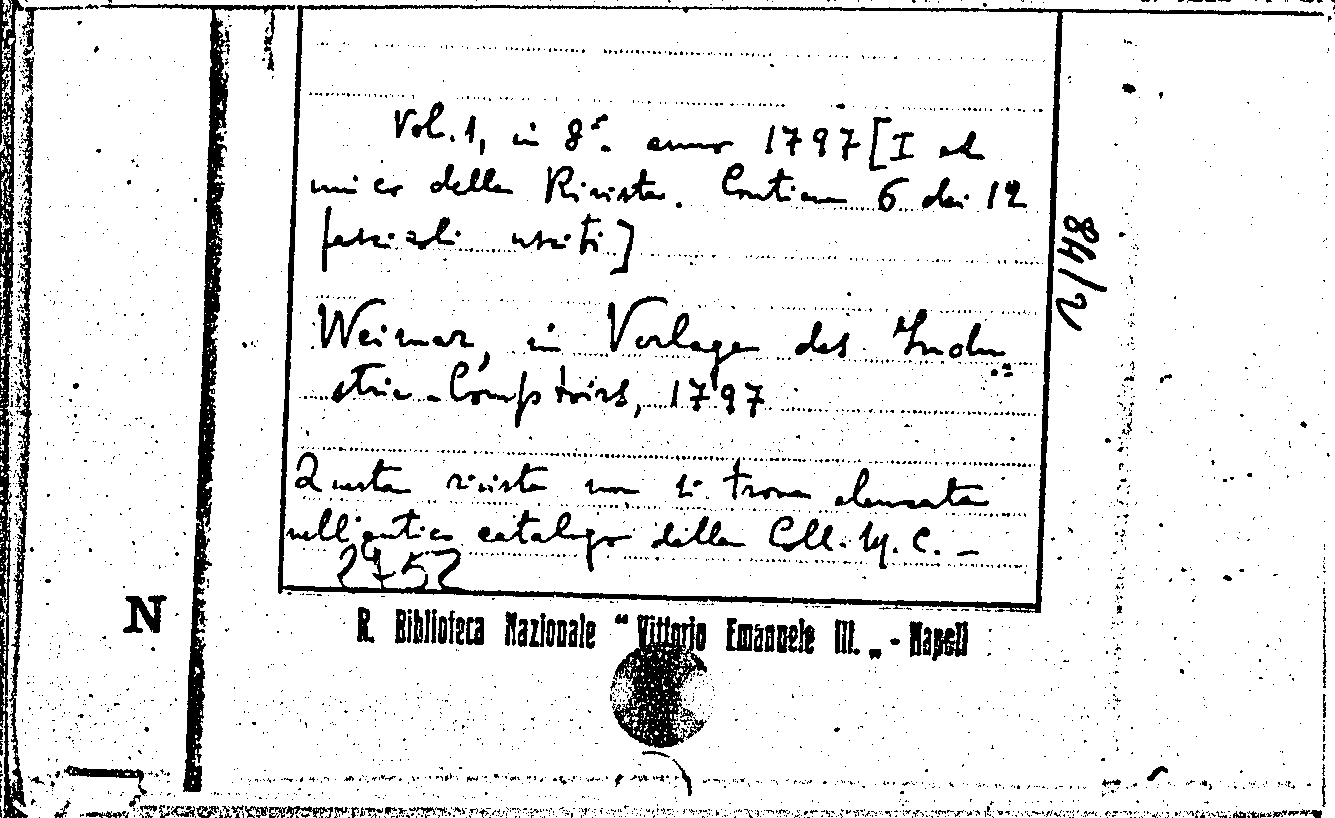 Vol. 1, in 8°. anno 1797 [I ed
unico della Rivista. Contiene 6 dei 12
fascicoli usciti]
Weimar, in Verlage des Indu
strie-Comptoirs, 1797
Questa rivista non si trova elencata
nell'antico catalogo della Coll. M. C. –
2752
84/2
N
R. Biblioteca Nazionale “Vittorio Emanuele III. „ - Napoli